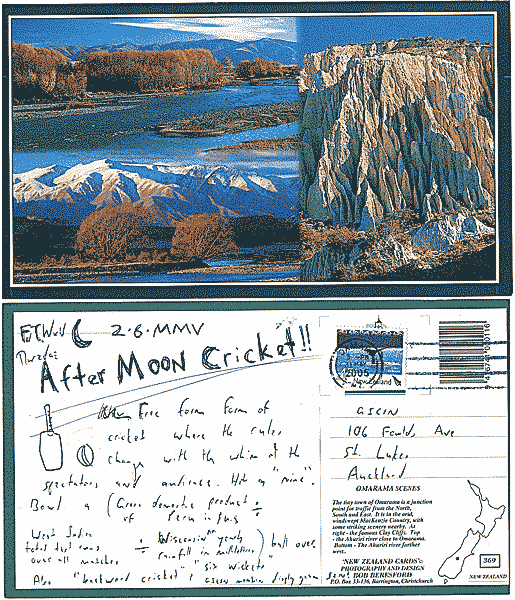 2.6.MMV
After MOON Cricket!!
Free form form of
cricket where the rules
change with the whim of the
spectators and audience. Hit a "nine".
Bowl a (Gross domestic product ÷
of
West Indian ÷ Wisconsin yearly ÷) ball over.
total test runs rainfall in
over all matches "six wickets"
Also "backward cricket
2005
New Zealand
GSCIN
106 Fowlds Ave
St. Lukes
Auckland
OMARAMA SCENES
The tiny town of Omarama is a junction
point for traffic from the North,
South and East. It is in the arid,
windswept MacKenzie Country, with
some striking scenery nearby. At
right - the famous Clay Cliffs. Top
- the Ahuriri river close to Omarama.
Bottom - The Ahuriri river further
west.
369
'NEW ZEALAND CARDS'©
PHOTOGRAPHY AND DESIGN
BOB BERESFORD
P.O. Box 33-136, Barrington, Christchurch
NEW ZEALAND